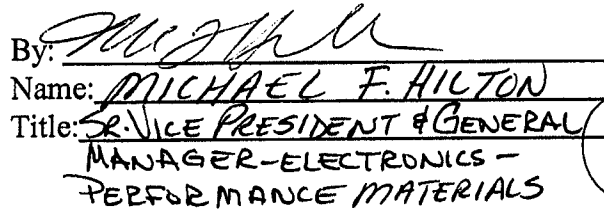 By:
Name: MICHAEL F. HILTON
Title: SR. VICE PRESIDENT & GENERAL
MANAGER-ELECTRONICS-
PERFORMANCE MATERIALS